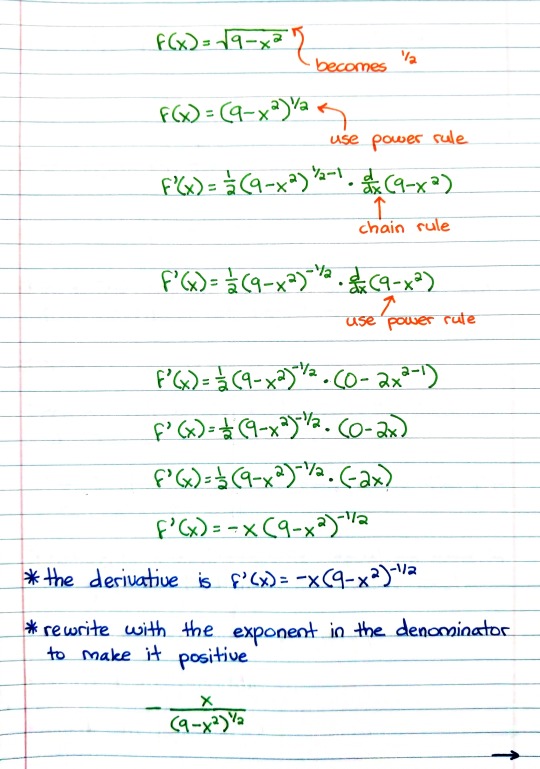 f(x) = √9-x²
becomes 1/2
f(x) = (9-x²)^1/2
use power rule
f'(x) = 1/2 (9-x²)^1/2-1 · d/dx (9-x²)
chain rule
f'(x) = 1/2 (9-x²)^-1/2 · d/dx (9-x²)
use power rule
f'(x) = 1/2 (9-x²)^-1/2 · (0 - 2x^2-1)
f'(x) = 1/2 (9-x²)^-1/2 · (0-2x)
f'(x) = 1/2 (9-x²)^-1/2 · (-2x)
f'(x) = -x (9-x²)^-1/2
* the derivative is f'(x) = -x(9-x²)^-1/2
* rewrite with the exponent in the denominator
to make it positive
- x/(9-x²)^1/2
→